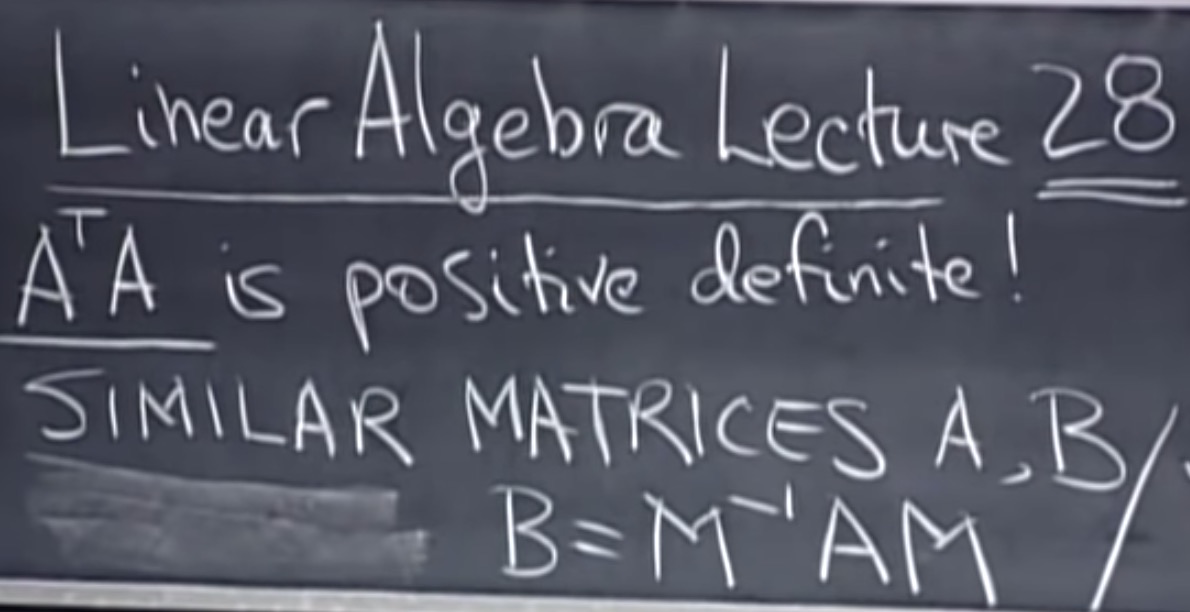 Linear Algebra Lecture 28
AᵀA is positive definite!
SIMILAR MATRICES A, B/
B=M⁻¹AM